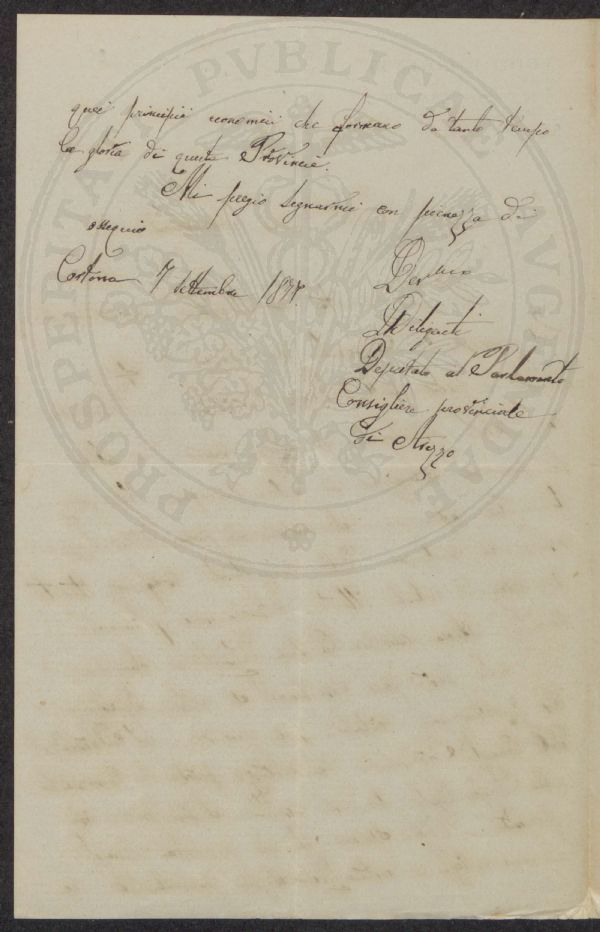 quei principii economici che formano da tanto tempo
la gloria di queste Provincie.
Mi pregio segnarmi con pienezza di
ossequio
Cortona 7 Settembre
Diligenti
Deputato al Parlamento
Consigliere provinciale
di Arezzo
PROSPERITATI PVBLICAE AVGENDAE